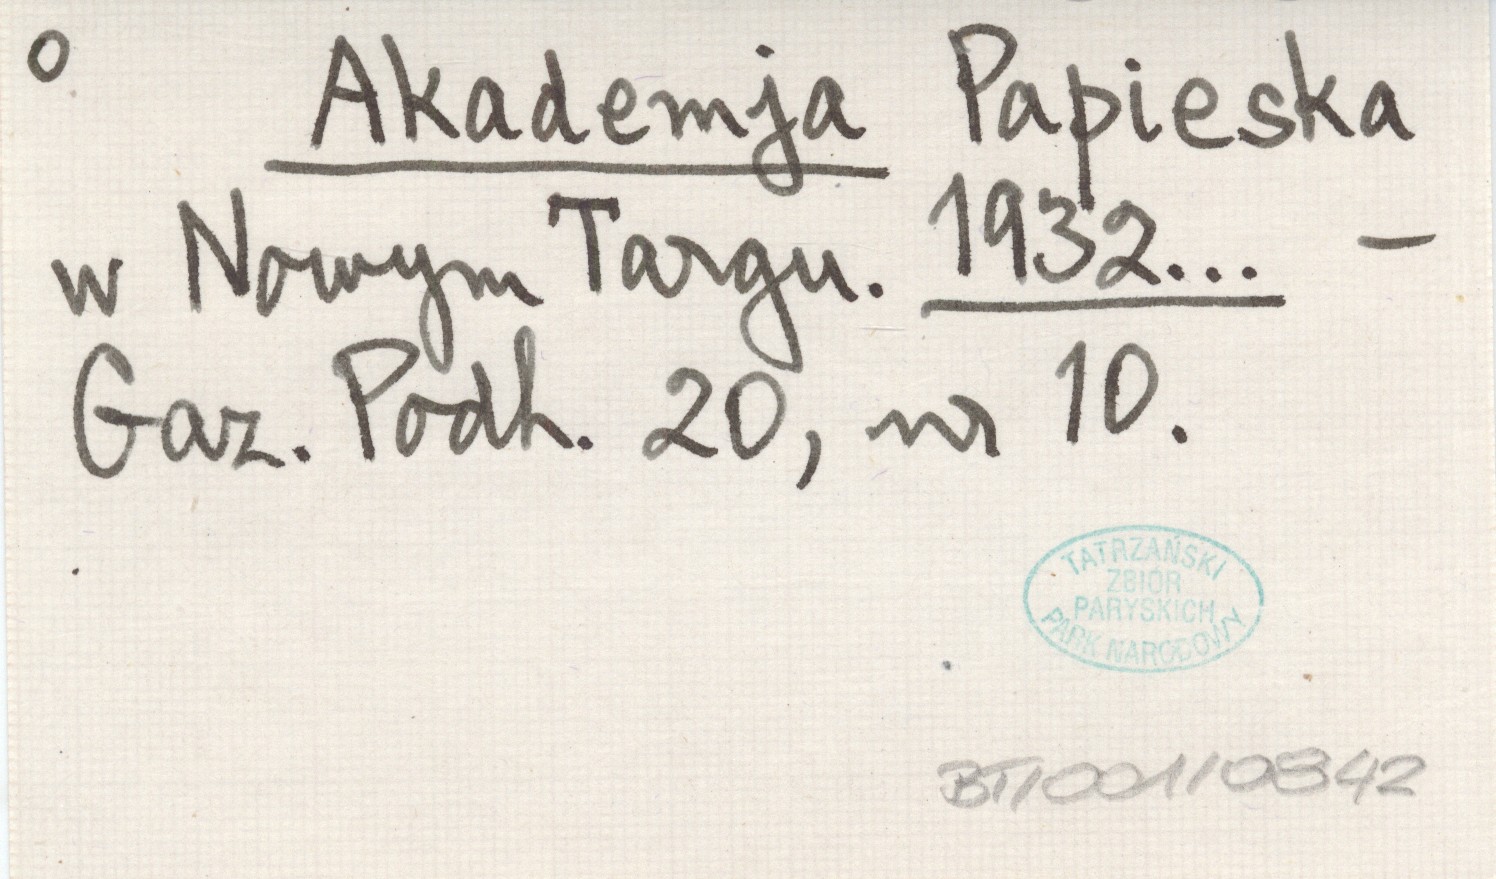 o Akademja Papieska
w Nowym Targu. 1932... –
Gaz. Podh. 20, nr 10.
TATRZAŃSKI
ZBIÓR
PARYSKICH
PARK NARODOWY
BT/001/0842